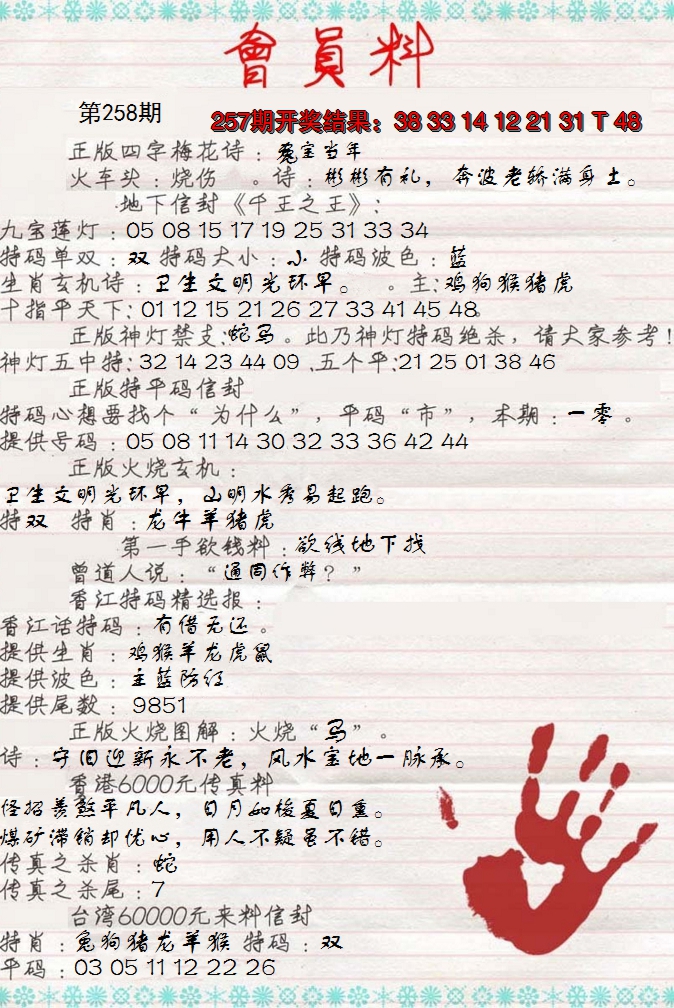 會員料
第258期
257期开奖结果：38 33 14 12 21 31 T 48
正版四字梅花诗：兔宝当年
火车头：烧伤 。诗：彬彬有礼，奔波老轿满身土。
地下信封《千王之王》：
九宝莲灯：05 08 15 17 19 25 31 33 34
特码单双：双 特码大小：小 特码波色：蓝
生肖玄机诗：卫生文明光环早。 。主：鸡狗猴猪虎
十指平天下：01 12 15 21 26 27 33 41 45 48。
正版神灯禁支：蛇马。此乃神灯特码绝杀，请大家参考！
神灯五中特：32 14 23 44 09 .五个平：21 25 01 38 46
正版特平码信封
特码心想要找个“为什么”，平码“市”，本期：一零。
提供号码：05 08 11 14 30 32 33 36 42 44
正版火烧玄机：
卫生文明光环早，山明水秀易起跑。
特双 特肖：龙牛羊猪虎
第一手欲钱料：欲钱地下找
曾道人说：“通同作弊？”
香江特码精选报：
香江话特码：有借无还。
提供生肖：鸡猴羊龙虎鼠
提供波色：主蓝防红
提供尾数：9851
正版火烧图解：火烧“马”。
诗：守旧迎新永不老，风水宝地一脉承。
香港6000元传真料
怪招善煞平凡人，日月如梭夏日熏。
煤矿滞销却优心，用人不疑虽不错。
传真之杀肖：蛇
传真之杀尾：7
台湾60000元来料信封
特肖：兔狗猪龙羊猴 特码：双
平码：03 05 11 12 22 26